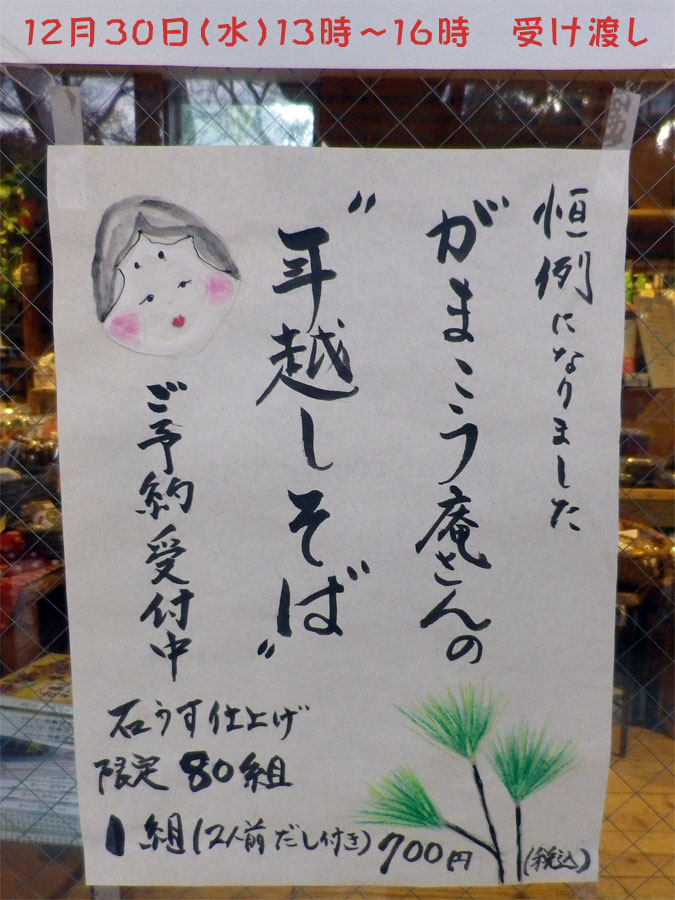 12月30日(水)13時～16時　受け渡し
恒例になりました
がまこう庵さんの
〝年越しそば〟
ご予約受付中
石うす仕上げ
限定 80組
1組(2人前 だし付き) 700円 (税込)